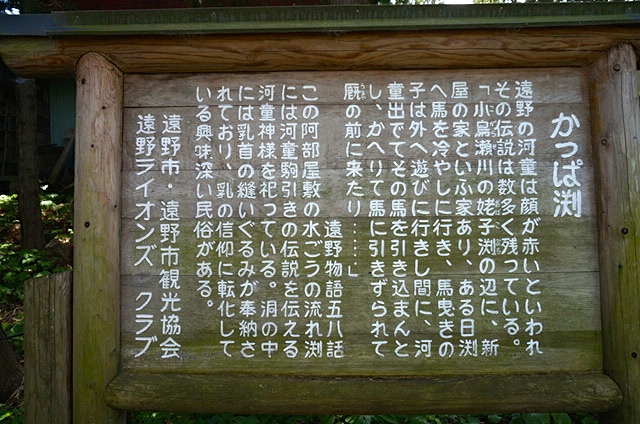 かっぱ淵
遠野の河童は顔が赤いといわれ
その伝説は数多く残っている。
「小烏瀬川の姥子淵の辺に、新
屋の家といふ家あり、ある日淵
へ馬を冷やしに行き、馬曳きの
子は外へ遊びに行きし間に、河
童出でてその馬を引き込まんと
し、かへりて馬に引きずられて
厩の前に来たり……」
遠野物語五八話
この阿部屋敷の水ごうの流れ淵
には河童駒引きの伝説を伝える
河童神様を祀っている。洞の中
には乳首の縫いぐるみが奉納さ
れており、乳の信仰に転化して
いる興味深い民俗がある。
遠野市・遠野市観光協会
遠野ライオンズ クラブ